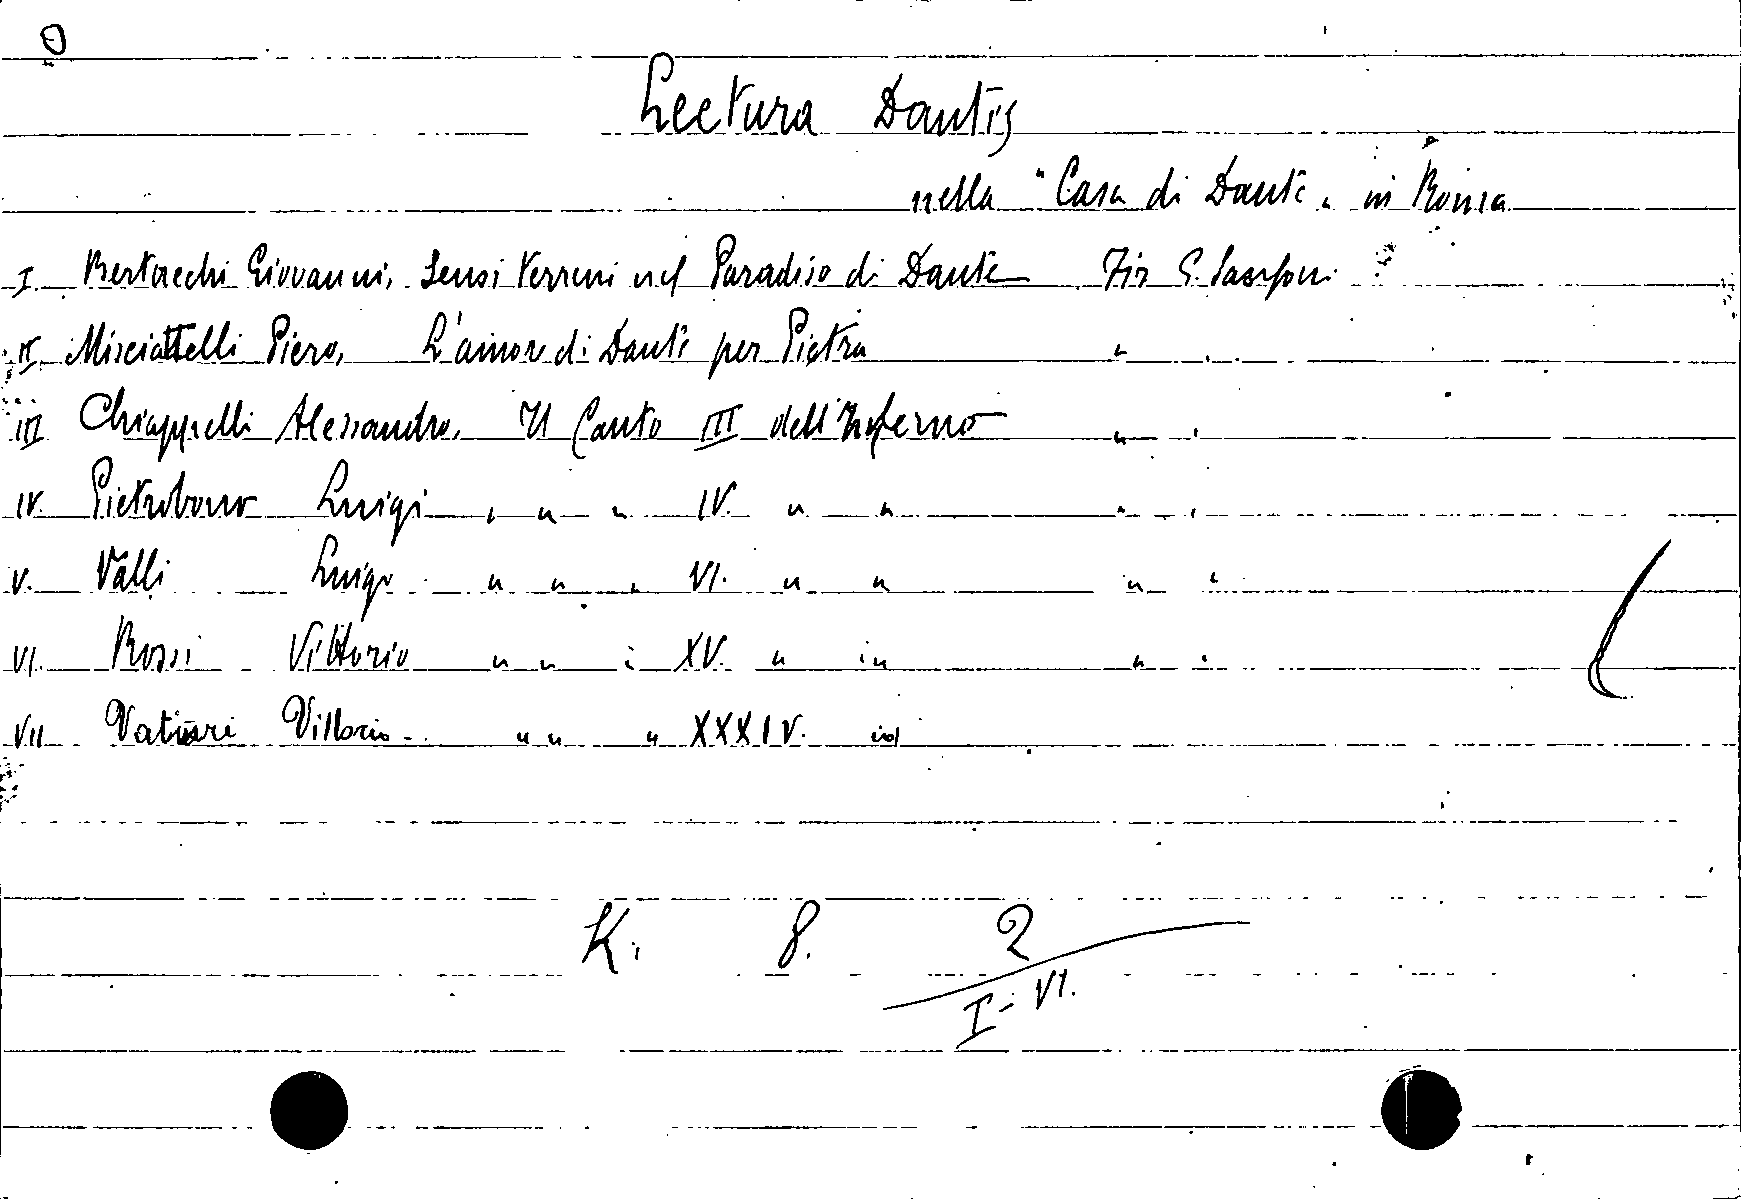 Lectura Dantis
nella "Casa di Dante" in Roma
I. Bertacchi Giovanni, Sensi terreni nel Paradiso di Dante Fir. G. Sansoni
II Misciattelli Piero, L'amore di Dante per Pietra " "
III Chiappelli Alessandro, Il Canto III dell'Inferno " "
IV. Pietrobono Luigi, " " IV. " " " "
V. Valli Luigi " " " VI. " " " "
VI. Rossi Vittorio " " " XV. " " " "
VII Vittorio " " " XXXIV. id
K. 8. 2
I-VI.